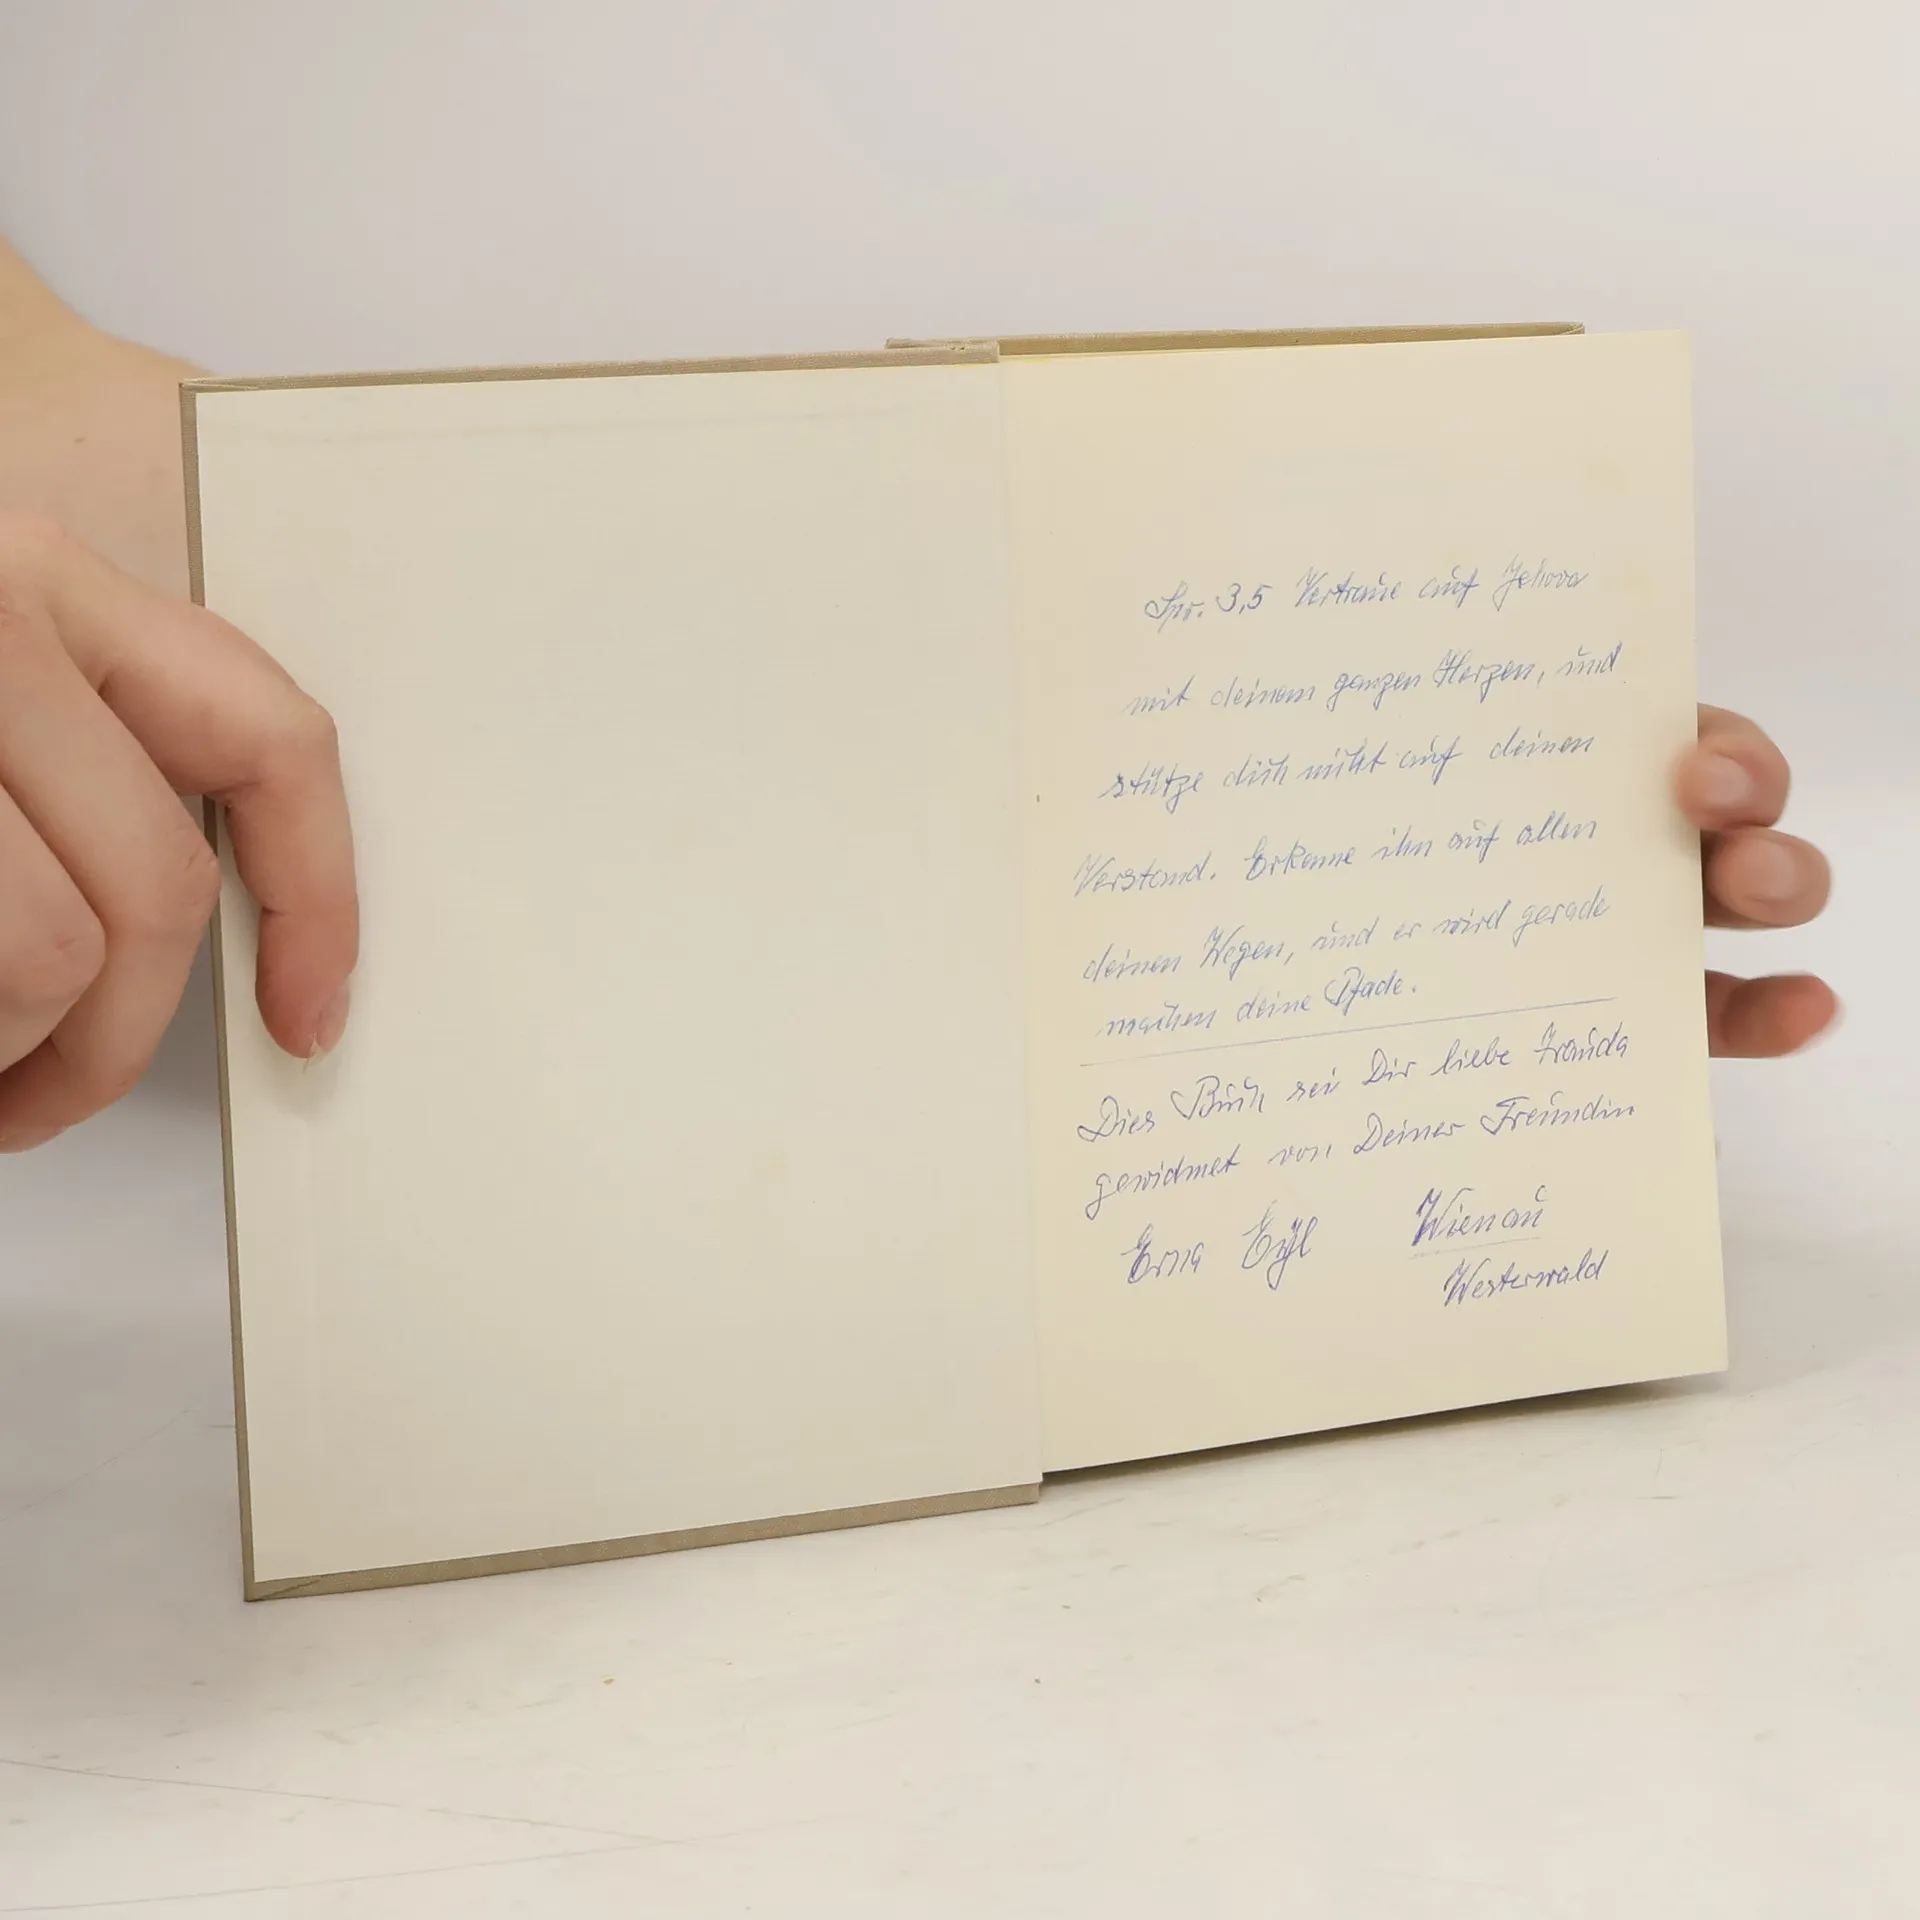 Spr. 3,5 Vertraue auf Jehova
mit deinem ganzen Herzen, und
stütze dich nicht auf deinen
Verstand. Erkenne ihn auf allen
deinen Wegen, und er wird gerade
machen deine Pfade.
Dies Buch sei Dir liebe Trauda
gewidmet von Deiner Freundin
Erna Eyl Wienau
Westerwald